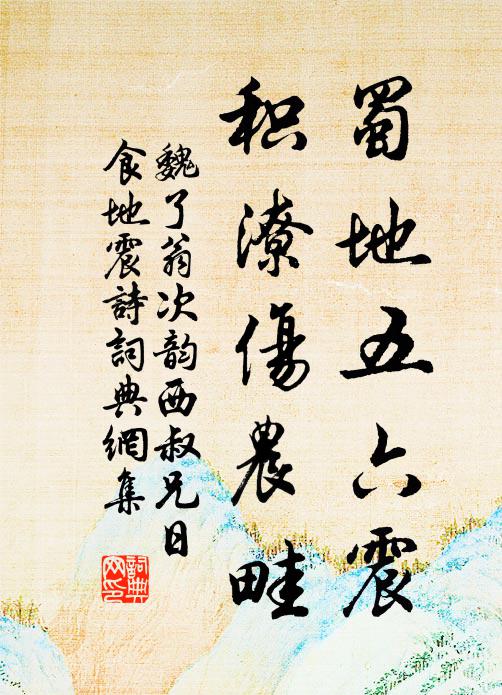 蜀地五六震
积潦傷農畦
魏了翁次韵西叔兄日
食地震詩詞典網集
詞典
网印